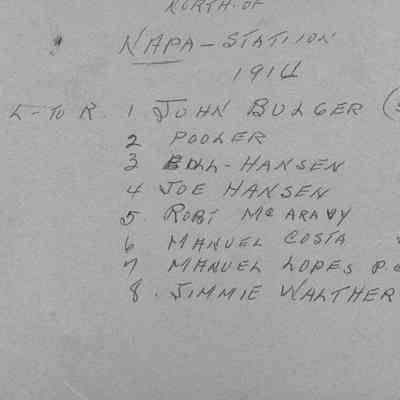 NORTH. OF
NAPA-STATIION
1914
L-TO R. 1 JOHN BULGER (
2 POOLER
3 BILL-HANSEN
4 JOE HANSEN
5. ROBT
6 MANUEL COSTA
7 MANUEL LOPES P.
8. JIMMIE WALTHER